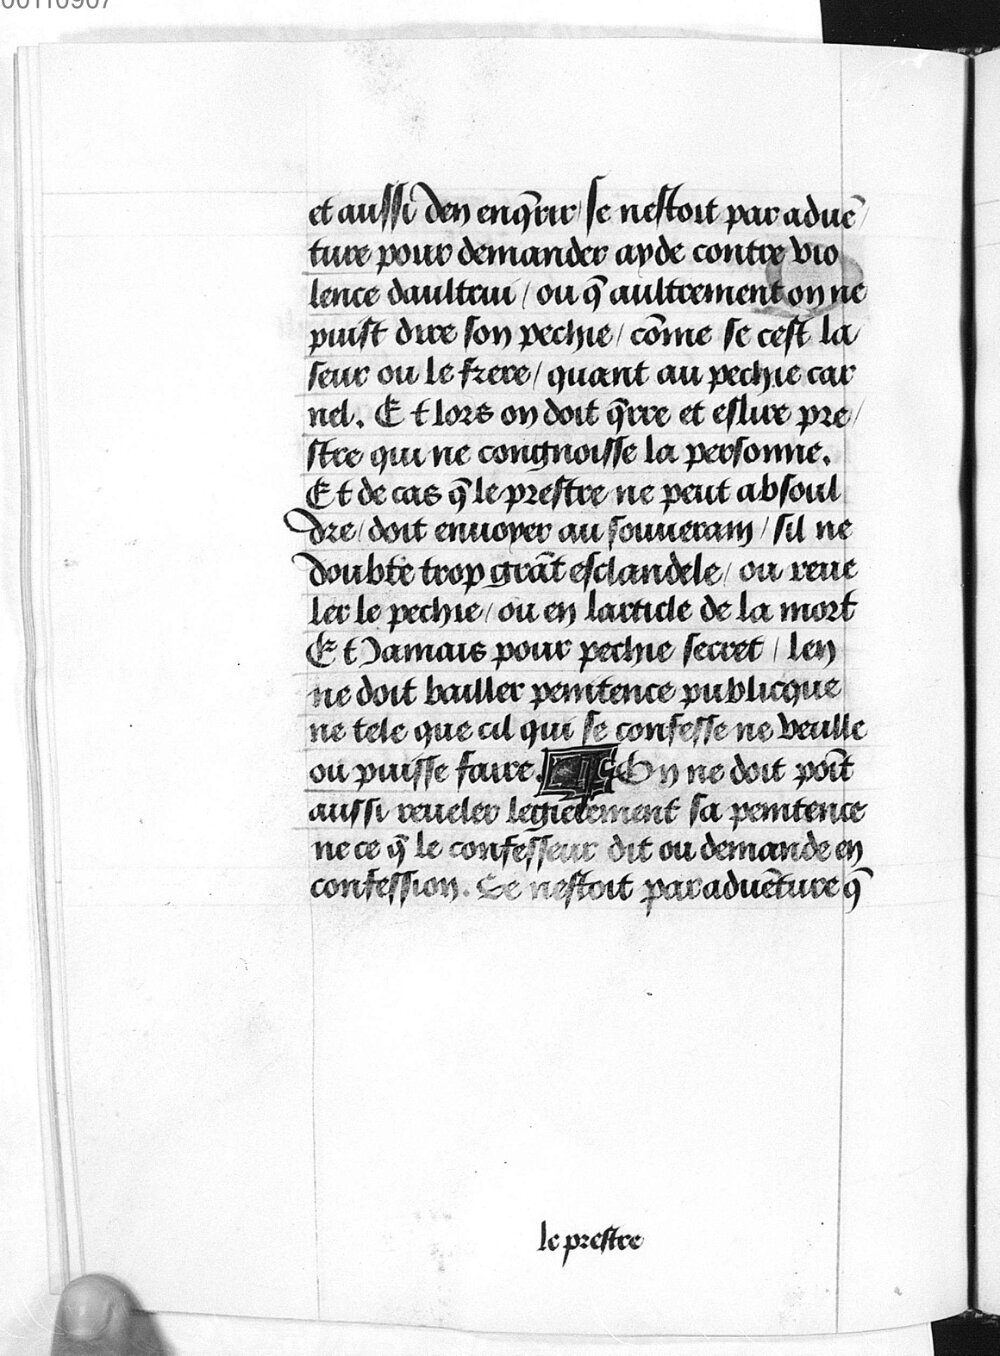 00110907
et aussi den enq̃rir / se nestoit par aduẽ/
ture pour demander ayde contre vio
lence daultrui / ou q̃ aultrement on ne
puist dire son pechie / cõme se cest la
seur ou le frere / quant au pechie car
nel. Et lors on doit q̃rre et eslire pre/
stre qui ne congnoisse la personne.
Et de cas q̃ le prestre ne peut absoul
dre / doit enuoyer au souuerain / sil ne
doubte trop grãt esclandele / ou reue
ler le pechie / ou en larticle de la mort
Et Jamais pour pechie secret / len
ne doit bailler penitence publicque
ne tele que cil qui se confesse ne veulle
ou puisse faire. On ne doit poĩt
aussi reueler legierement sa penitence
ne ce q̃ le confesseur dit ou demande en
confession. Se nestoit par aduẽture q̃
le prestre